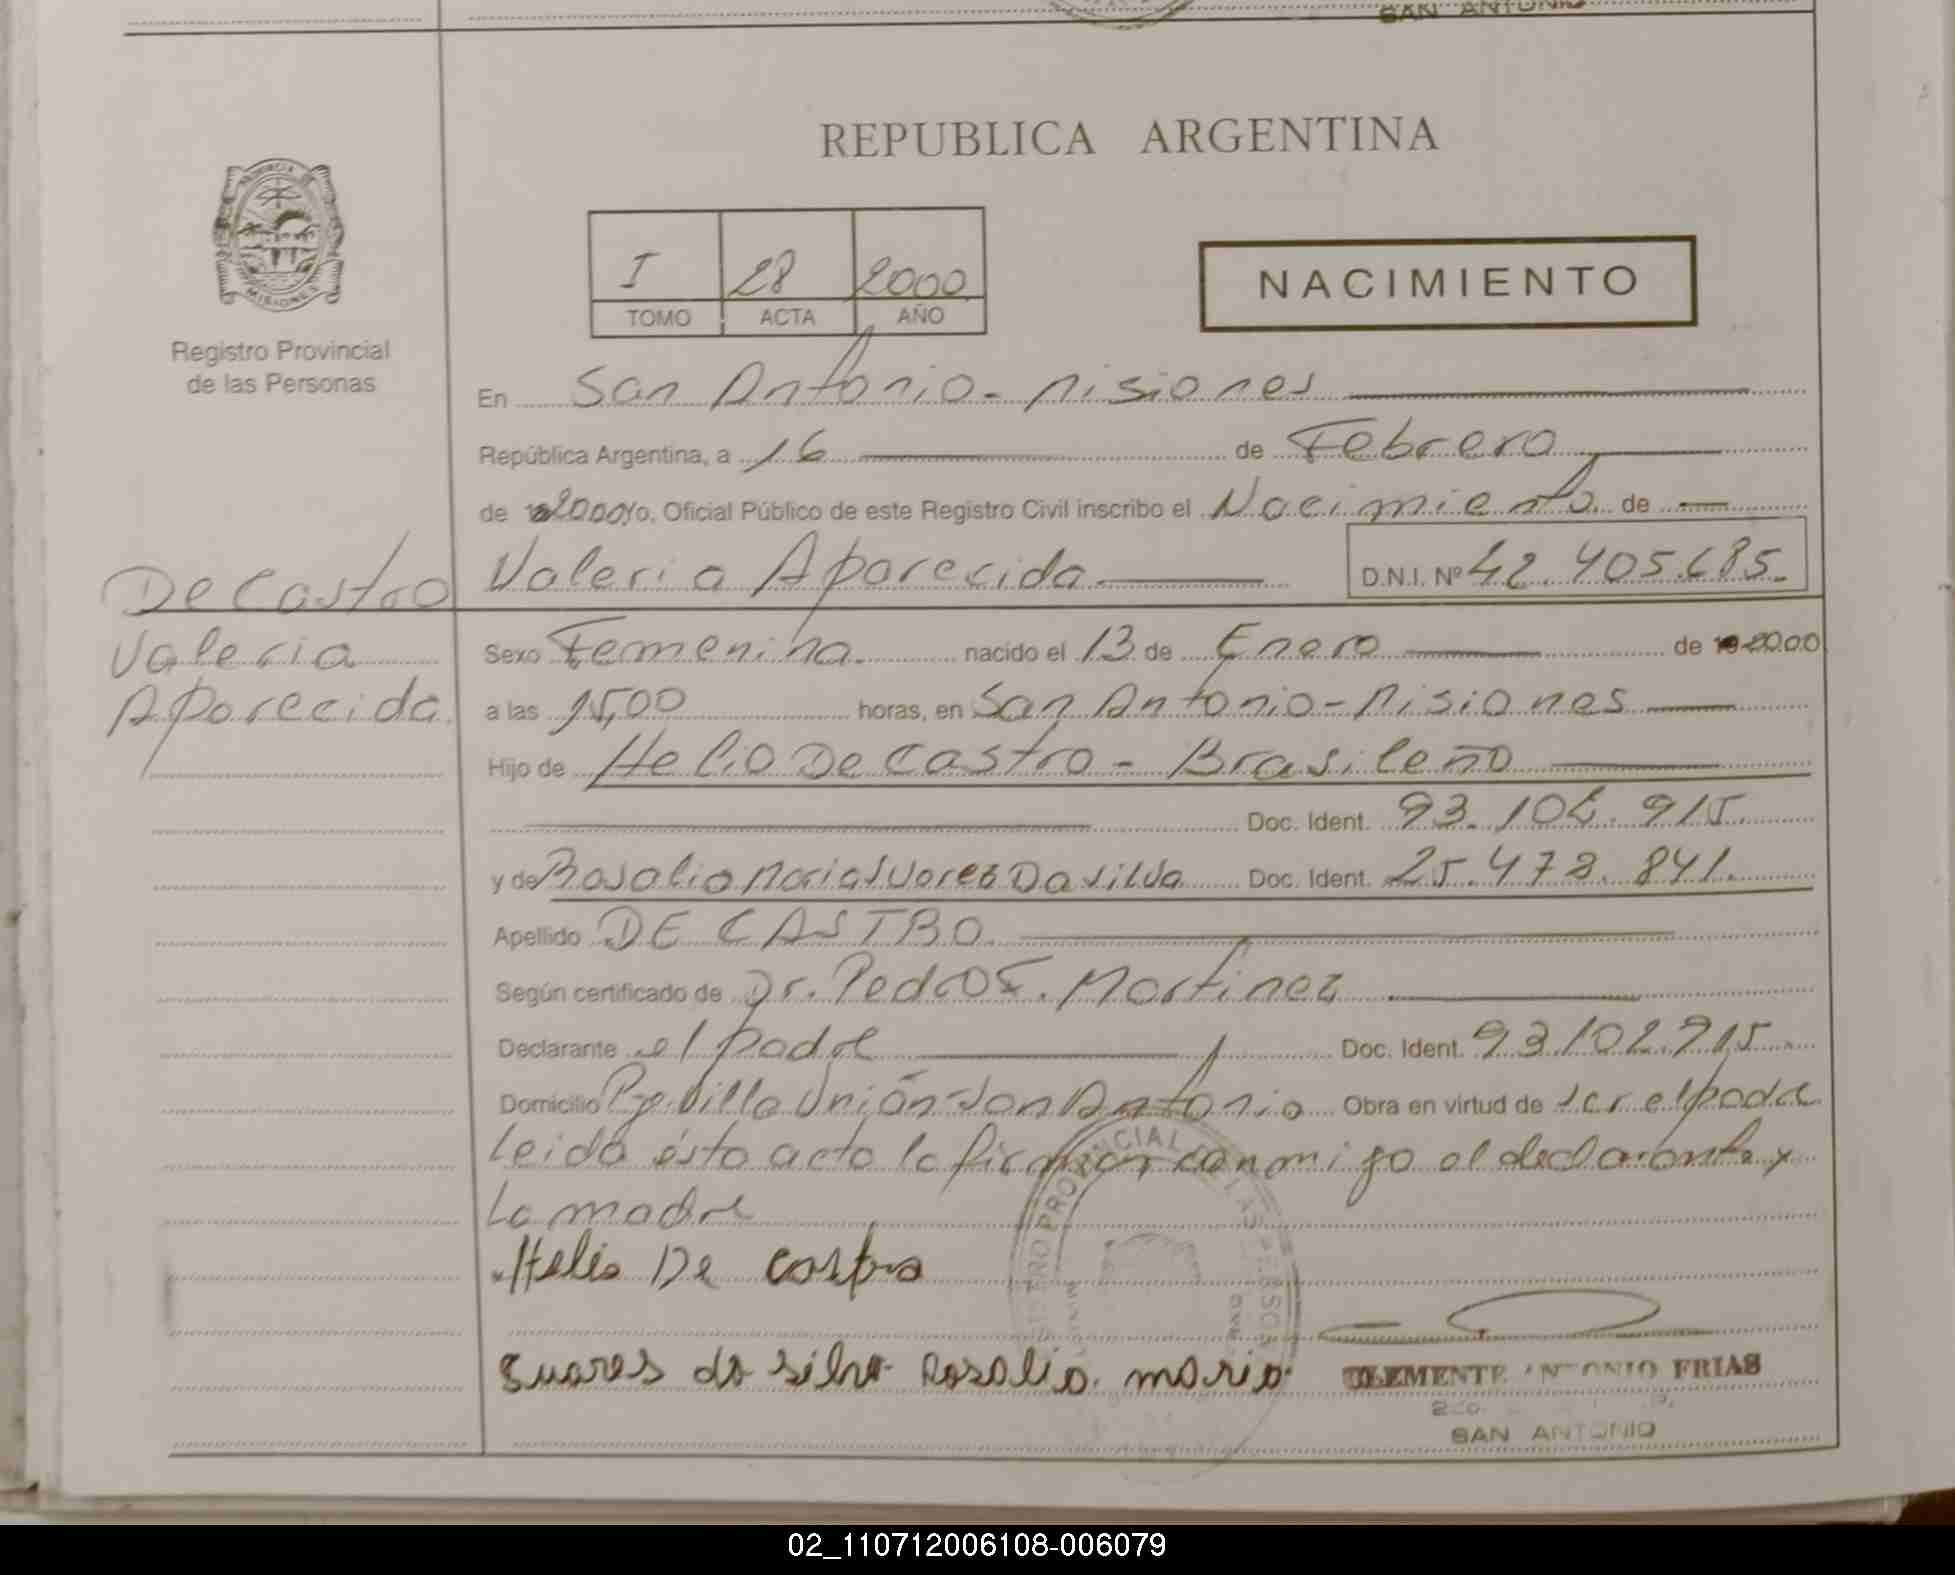 SAN ANTONIO
REPUBLICA ARGENTINA
I 28 2000
TOMO ACTA AÑO
NACIMIENTO
PROVINCIA DE
MISIONES
Registro Provincial
de las Personas
En San Antonio - Misiones
República Argentina, a 16 de Febrero
de 2000 Yo, Oficial Público de este Registro Civil inscribo el Nacimiento de
Valeria Aparecida D.N.I. Nº 42.405.685.
De Castro
Valeria
Aparecida
Sexo Femenina nacido el 13 de Enero de 2000
a las 15,00 horas, en San Antonio - Misiones
Hijo de Helio De Castro - Brasileño
Doc. Ident. 93.102.915.
y de Rosalia Maria Suares Da Silva Doc. Ident. 25.473.841.
Apellido DE CASTRO
Según certificado de Dr. Pedro E. Martinez
Declarante el padre Doc. Ident. 93.102.915.
Domicilio Pje. Villa Unión San Antonio Obra en virtud de ser el padre
Leida ésta acta la firman conmigo el declarante y
La madre
Helio De castro
Suares da silva Rosalia maria
CLEMENTE ANTONIO FRIAS
SAN ANTONIO
02_110712006108-006079